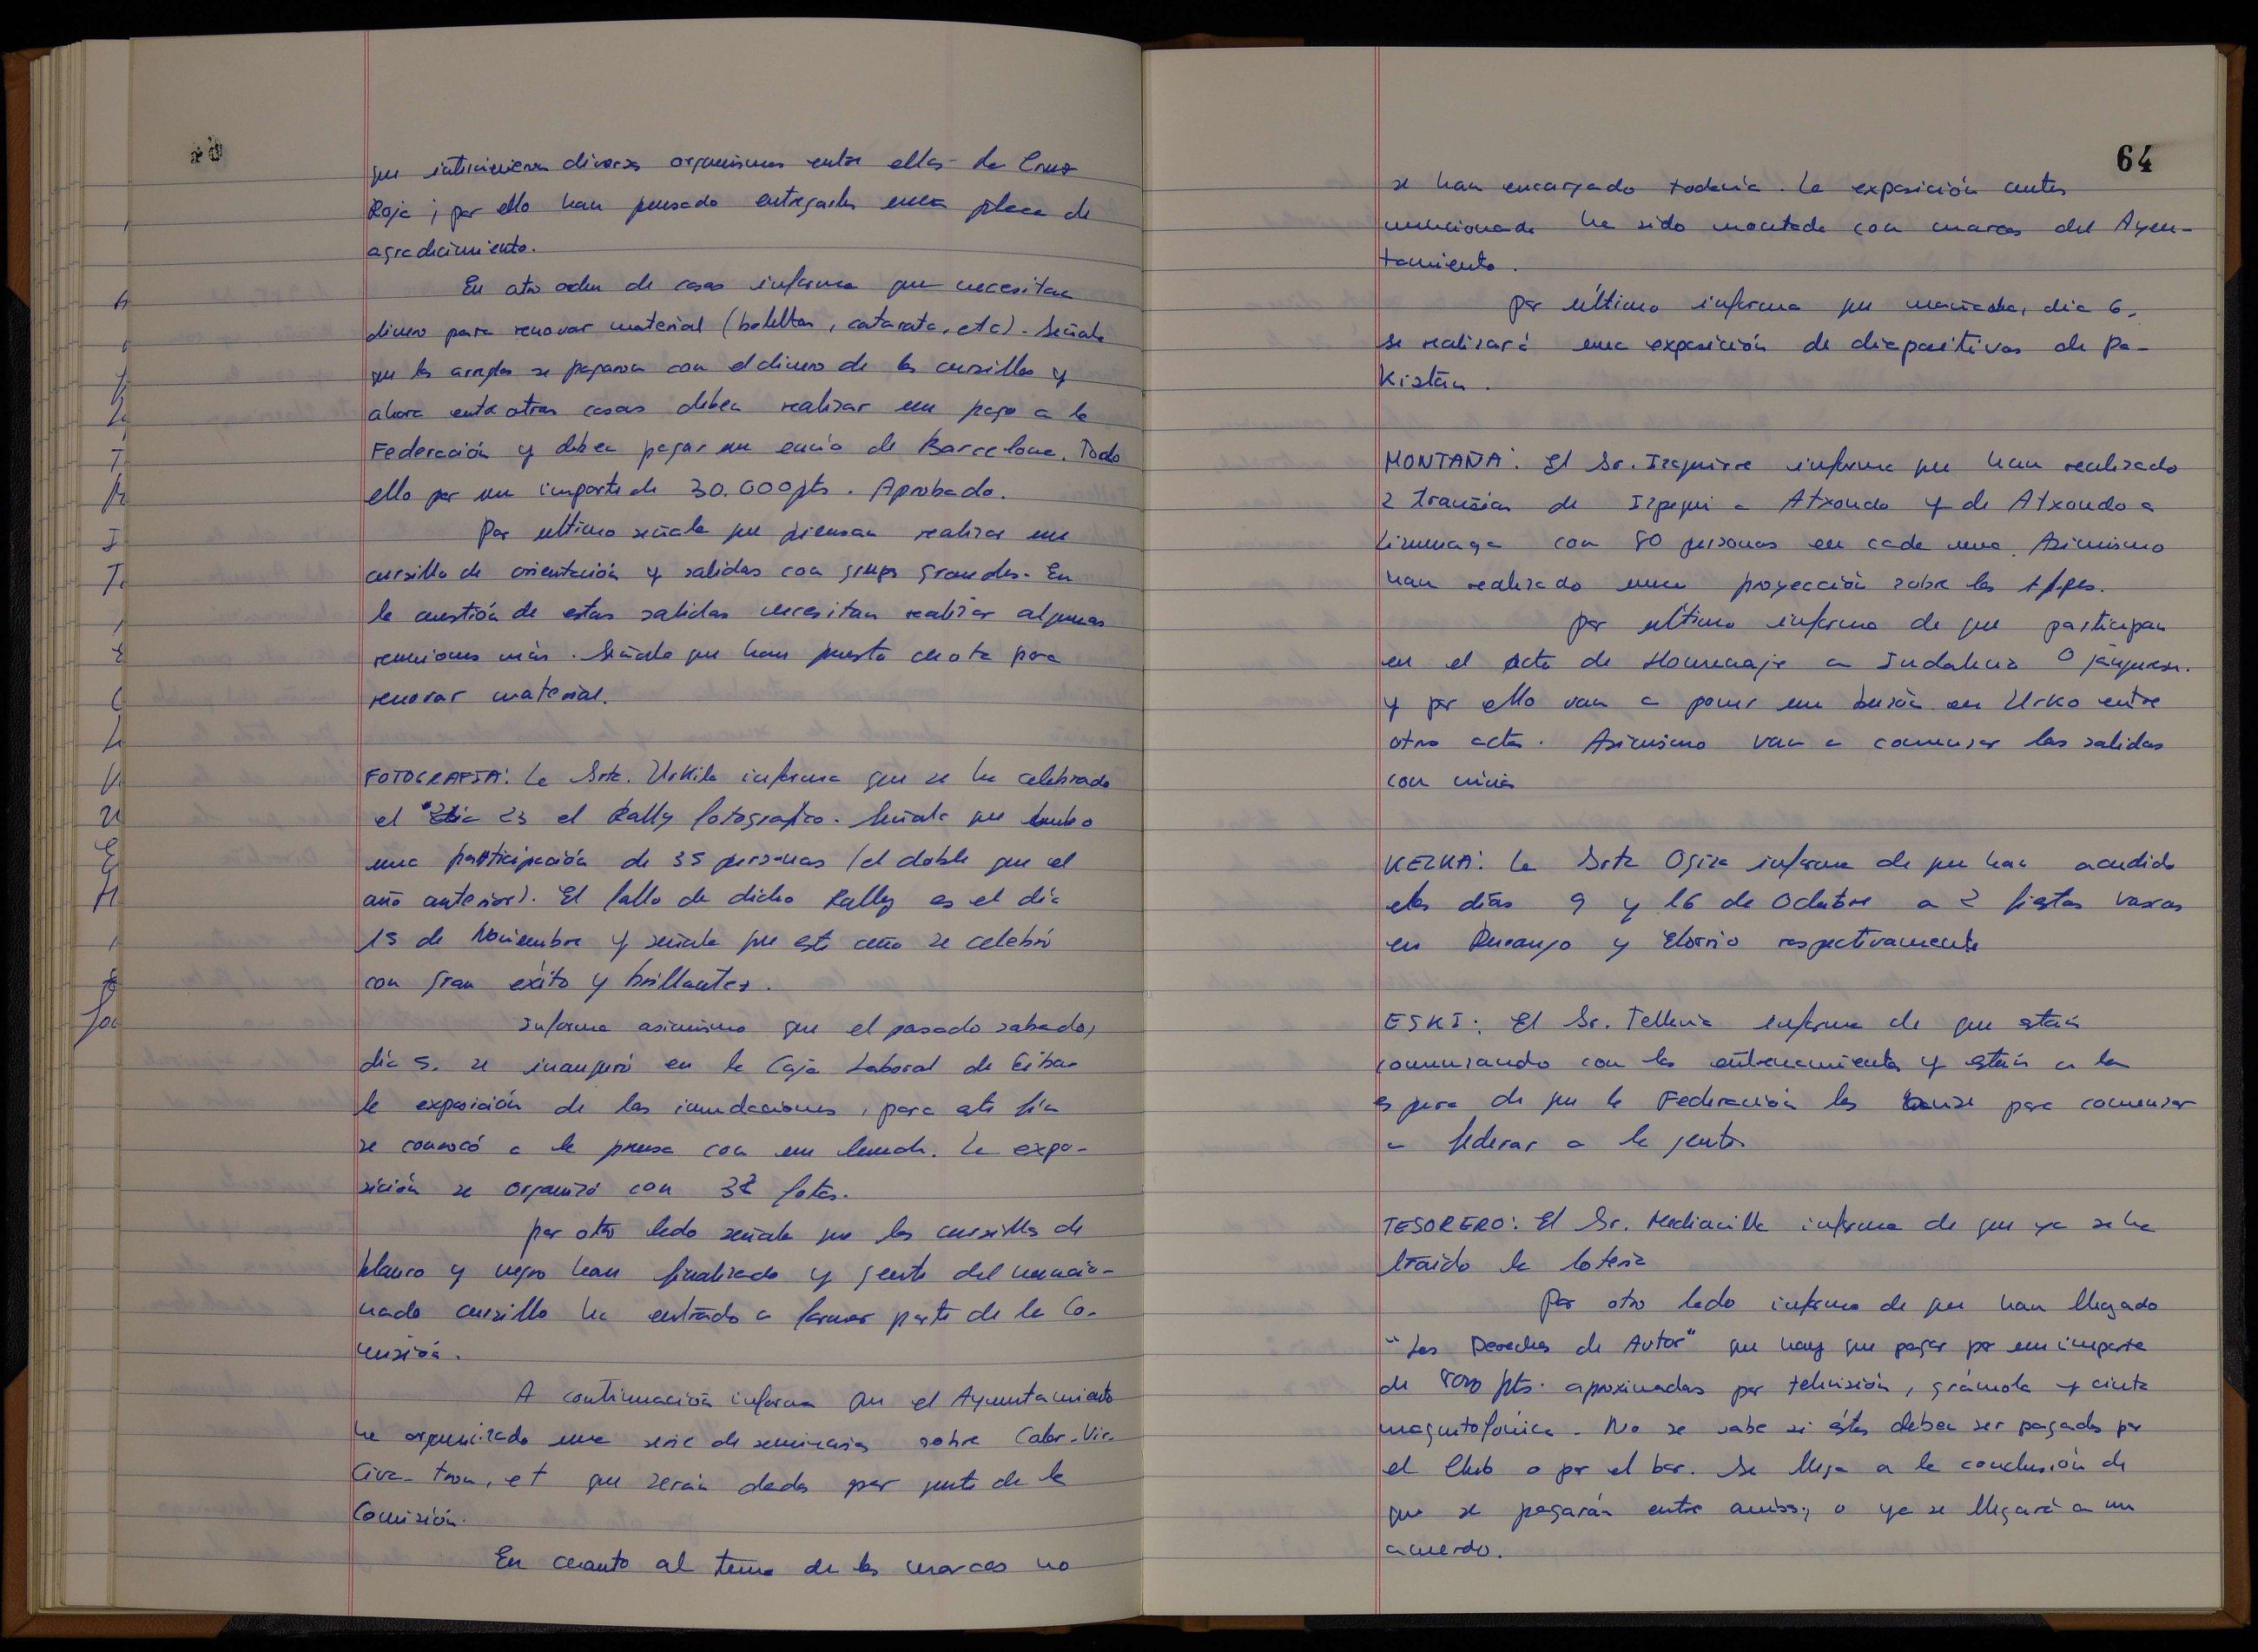 que intervinieron diversos organismos entre ellos la Cruz
Roja; por ello han pensado entregarles una placa de
agradecimiento.
En otro orden de cosas informa que necesitan
dinero para renovar material (botellas, catarata, etc). Señala
que los arreglos se pagaron con el dinero de los cursillos y
ahora entre otras cosas deben realizar un pago a la
Federación y deben pagar un envío de Barcelona. Todo
ello por un importe de 30.000 pts. Aprobado.
Por ultimo señala que piensan realizar un
cursillo de orientación y salidas con grupos grandes. En
la cuestión de estas salidas necesitan realizar algunas
reuniones más. Señala que han puesto cuota para
renovar material.
FOTOGRAFIA: La Srta. Urkila informa que se ha celebrado
el día 23 el Rally fotografico. Señala que hubo
una participación de 35 personas (el doble que el
año anterior). El fallo de dicho Rally es el día
15 de Noviembre y señala que este año se celebró
con gran éxito y brillantez.
Informa asimismo que el pasado sabado,
día 5, se inauguró en la Caja Laboral de Eibar
la exposición de las inundaciones, para este fin
se convocó a la prensa con un lunch. La expo-
sición se organizó con 38 fotos.
Por otro lado señala que los cursillos de
blanco y negro han finalizado y gente del mencio-
nado cursillo ha entrado a formar parte de la Co-
misión.
A continuación informa que el Ayuntamiento
ha organizado una serie de seminarios sobre
que serán dados por gente de la
Comisión.
En cuanto al tema de los marcos no
64
se han encargado todavía. La exposición antes
mencionada ha sido montada con marcos del Ayun-
tamiento.
Por último informa que mañana, día 6,
se realizará una exposición de diapositivas de Pa-
kistán.
MONTAÑA: El Sr. Izaguirre informa que han realizado
2 travesías de Izpegui a Atxondo y de Atxondo a
con 80 personas en cada una. Asimismo
han realizado una proyección sobre los Alpes.
Por último informa de que participan
en el acto de Homenaje a Indalecio Ojanguren.
y por ello van a poner un buzón en Urko entre
otros actos. Asimismo van a comenzar las salidas
con niños
KEZKA: La Srta Ogiza informa de que han acudido
los días 9 y 16 de Octubre a 2 fiestas vascas
en Durango y Elorrio respectivamente
ESKI: El Sr. Telleria informa de que están
comenzando con los entrenamientos y están a la
espera de que la Federación les avise para comenzar
a federar a la gente.
TESORERO: El Sr. Mediavilla informa de que ya se ha
traido la lotería
Por otro lado informa de que han llegado
"Los Derechos de Autor" que hay que pagar por un importe
de 8000 pts. aproximadas por televisión, grámola y cinta
magnetofónica. No se sabe si éstos deben ser pagados por
el Club o por el bar. Se llega a la conclusión de
que se pagarán entre ambos, o ya se llegará a un
acuerdo.